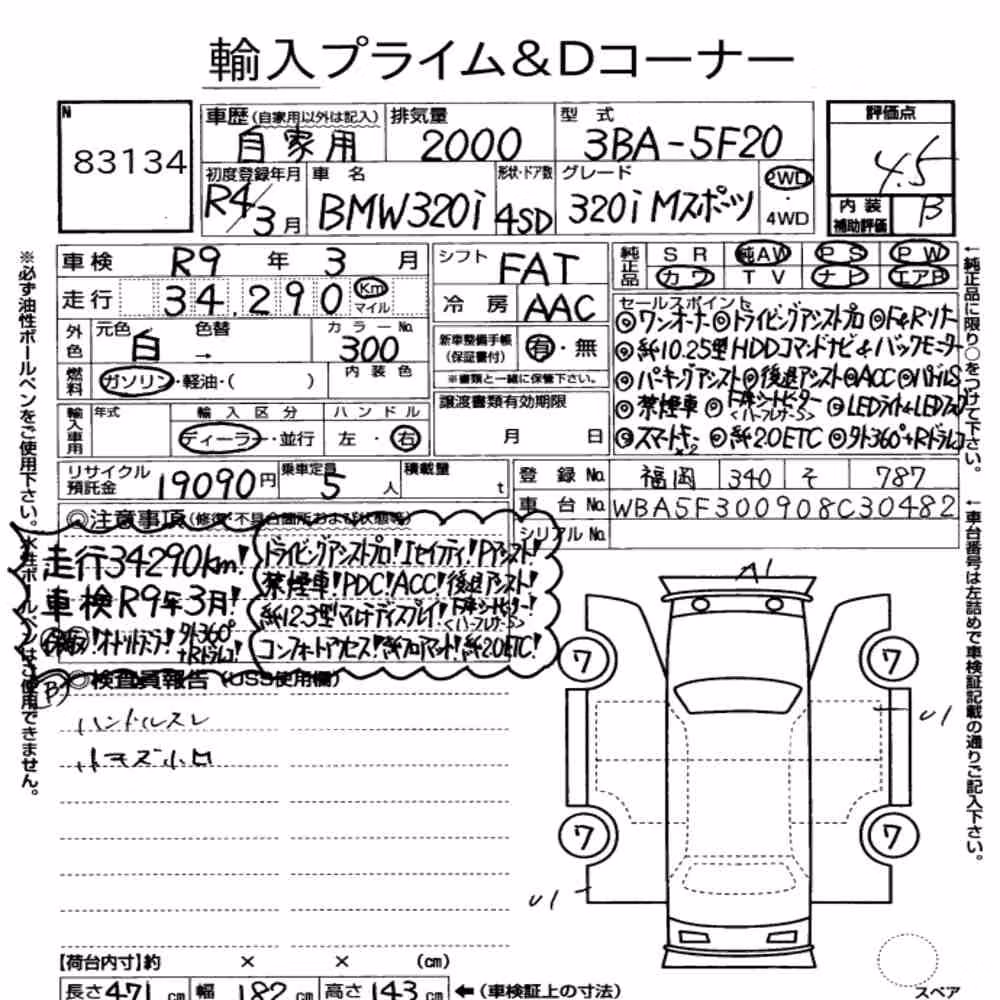 輸入プライム&Dコーナー
N
83134
車歴(自家用以外は記入)
自家用
排気量
2000
型式
3BA-5F20
評価点
4.5
初度登録年月
R4/3月
車名
BMW320i
形状・ドア数
4SD
グレード
320i Mスポーツ
2WD
・
4WD
内装
補助評価
B
車検 R9年 3月
シフト
FAT
純正品
SR 純AW PS PW
カワ TV ナビ エアB
走行 34,290 Km
マイル
冷房 AAC
セールスポイント
◎ワンオーナー◎ドライビングアシストプロ◎F&Rソナー
◎純10.25型HDDコマンドナビ&バックモニター
◎パーキングアシスト◎後退アシスト◎ACC◎パドルS
◎禁煙車 ◎LEDライト&LEDフォグ
◎スマートキー×2 ◎純2.0ETC ◎外360°+Rドラレコ
外色
元色
白
色替
→
カラーNo.
300
新車整備手帳
(保証書付)
有・無
※書類と一緒に保管下さい。
燃料
ガソリン・軽油・( )
内装色
譲渡書類有効期限
月 日
輸入車用
年式
輸入区分
ディーラー・並行
ハンドル
左・右
リサイクル
預託金
19090円
乗車定員
5人
積載量
t
登録No. 福岡 340 そ 787
車台No. WBA5F300908C30482
シリアルNo.
◎注意事項(修復・不具合箇所および状態等)
走行34290km!
車検R9年3月!
外360°
+Rドラレコ!
ドライビングアシストプロ!Iセイフティ!Pアシスト!
禁煙車!PDC!ACC!後退アシスト!
純12.3型マルチディスプレイ!
コンフォートアクセス!純フロアマット!純2.0ETC!
◎検査員報告(USS使用欄)
B
ハンドルスレ
A1
U1
U1
7
7
7
7
【荷台内寸】約 × × (cm)
長さ471cm 幅182cm 高さ143cm ←(車検証上の寸法)
スペア
※必ず油性ボールペンをご使用下さい。水性ボールペンはご使用できません。
←純正品に限り○をつけて下さい。
←車台番号は左詰めで車検証記載の通りご記入下さい。